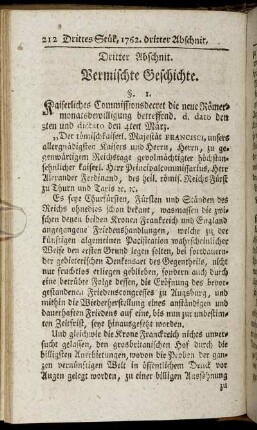 212 Drittes Stük, 1762. dritter Abschnit.
Dritter Abschnit.
Vermischte Geschichte.
§. 1.
Kaiserliches Commissionsdecret die neue Römer-
monatsbewilligung betreffend. d. dato den
2ten und dictato den 4ten März.
„Der römischkaiserl. Majestät FRANCISCI, unsers
allergnädigsten Kaisers und Herrn, Herrn, zu ge-
genwärtigem Reichstage gevolmächtigter höchstan-
sehnlicher kaiserl. Herr Principalcommissarius, Herr
Alexander Ferdinand, des heil. römis. Reichs Fürst
zu Thurn und Taxis ꝛc. ꝛc.
Es seye Churfürsten, Fürsten und Ständen des
Reichs ohnedies schon bekant, wasmassen die zwi-
schen denen beiden Kronen Frankreich und England
angegangene Friedenshandlungen, welche zu der
künftigen algemeinen Pacification wahrscheinlicher
Weise den ersten Grund legen solten, bei fortdauren-
der gedieterischen Denkensart des Gegentheils, nicht
nur fruchtlos erliegen geblieben, sondern auch durch
eine betrübte Folge dessen, die Eröfnung des bevor-
gestandenen Friedenscongresses zu Augspurg, und
mithin die Wiederherstellung eines anständigen und
dauerhaften Friedens auf eine, bis nun zur unbestim-
ten Zeitfrist, seye hinausgesetzt worden.
Und gleichwie die Krone Frankreich nichts unver-
sucht gelassen, den grosbritanischen Hof durch die
billigsten Anerbietungen, wovon die Proben der gan-
zen vernünftigen Welt in öffentlichem Druck vor
Augen gelegt worden, zu einer billigen Aussöhnung
zu